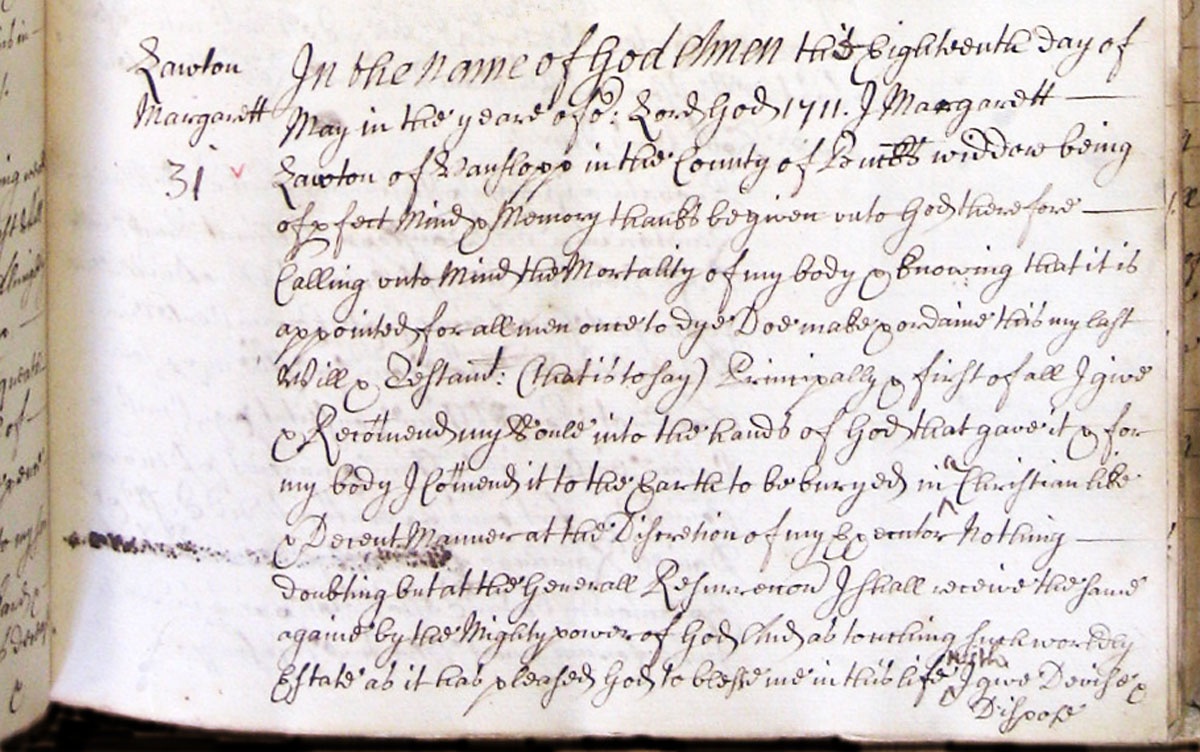 Lawton
Margarett
31
In the name of God Amen the Eighteenth day of
May in the yeare of or: Lord God 1711. I Margarett
Lawton of Warslopp in the County of Bucks widdow being
of pfect Mind & Memory thanks be given unto God therefore
Calling unto Mind the Mortality of my body & knowing that it is
appointed for all men once to dye Doe make & ordaine this my last
Will & Testamt: (that is to say) Principally & first of all I give
& Recomend my Soule into the hands of God that gave it & for
my body I Comend it to the Earth to be buryed in a Christian like
& Decent Manner at the Discretion of my Executor Nothing
doubting but at the Generall Resurreccon I shall receive the same
againe by the Mighty power of God And as touching such worldly
Estate as it has pleased God to blesse me in this life with I give Devise &
Dispose